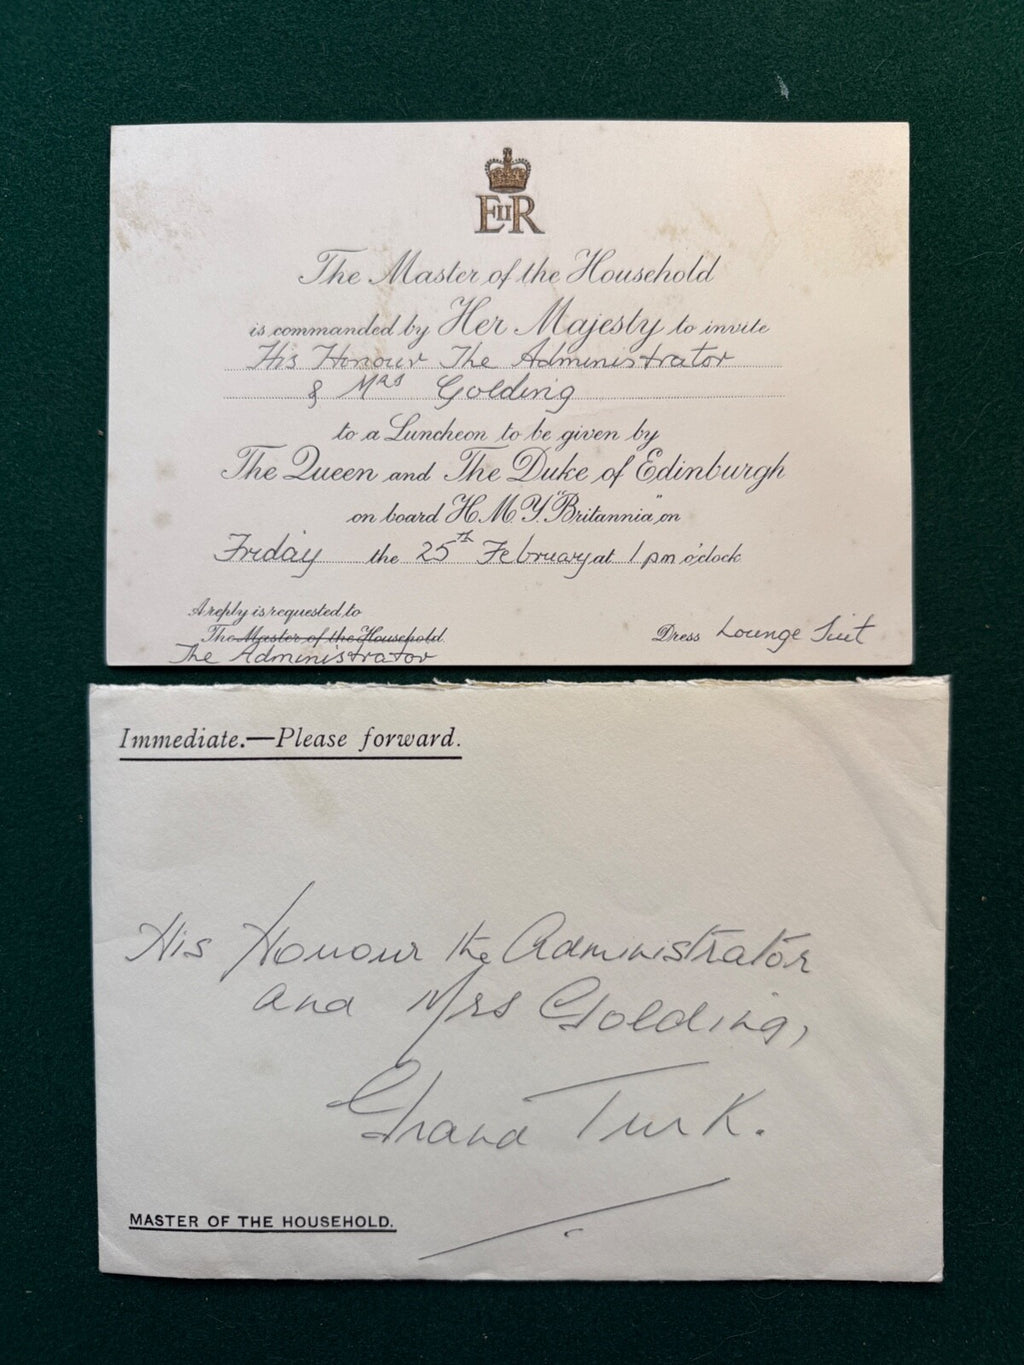 EIIR
The Master of the Household
is commanded by Her Majesty to invite
His Honour The Administrator
& Mrs Golding
to a Luncheon to be given by
The Queen and The Duke of Edinburgh
on board H.M.Y. "Britannia" on
Friday the 25th February at 1 pm o'clock
A reply is requested to
The Master of the Household
The Administrator
Dress Lounge Suit
Immediate.—Please forward.
His Honour the Administrator
and Mrs Golding,
Grand Turk.
MASTER OF THE HOUSEHOLD.